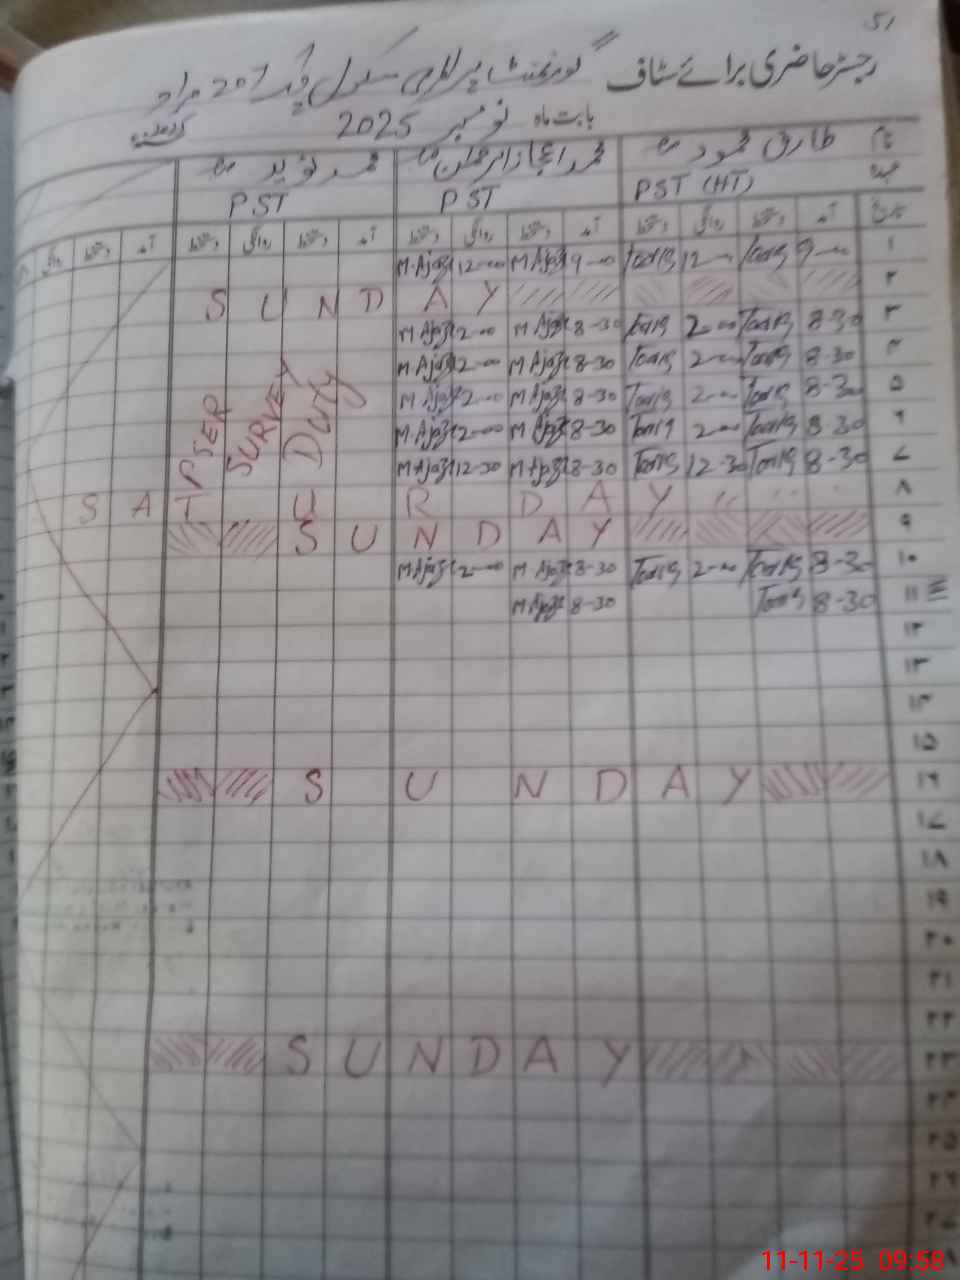 51
رجسٹر حاضری برائے سٹاف گورنمنٹ پرائمری سکول
بابت ماہ نومبر 2025
نام طارق محمود محمد اعجاز محمد نوید
عہدہ PST (HT) PST PST
تاریخ آمد دستخط روانگی دستخط آمد دستخط روانگی دستخط آمد دستخط روانگی دستخط آمد دستخط روانگی
۱ 9-00 Tariq 12-00 Tariq 9-00 M.Ajaz 12-00 M.Ajaz
۲ SUNDAY
۳ 8-30 Tariq 2-00 Tariq 8-30 M.Ajaz 2-00 M.Ajaz
۴ 8-30 Tariq 2-00 Tariq 8-30 M.Ajaz 2-00 M.Ajaz
۵ 8-30 Tariq 2-00 Tariq 8-30 M.Ajaz 2-00 M.Ajaz
۶ 8-30 Tariq 2-00 Tariq 8-30 M.Ajaz 2-00 M.Ajaz
۷ 8-30 Tariq 12-30 Tariq 8-30 M.Ajaz 12-30 M.Ajaz
PSER
SURVEY
DUTY
۸ SATURDAY
۹ SUNDAY
۱۰ 8-30 Tariq 2-00 Tariq 8-30 M.Ajaz 2-00 M.Ajaz
۱۱ 8-30 Tariq 8-30 M.Ajaz
۱۲
۱۳
۱۴
۱۵
۱۶ SUNDAY
۱۷
۱۸
۱۹
۲۰
۲۱
۲۲
۲۳ SUNDAY
۲۴
۲۵
۲۶
۲۷
11-11-25 09:58